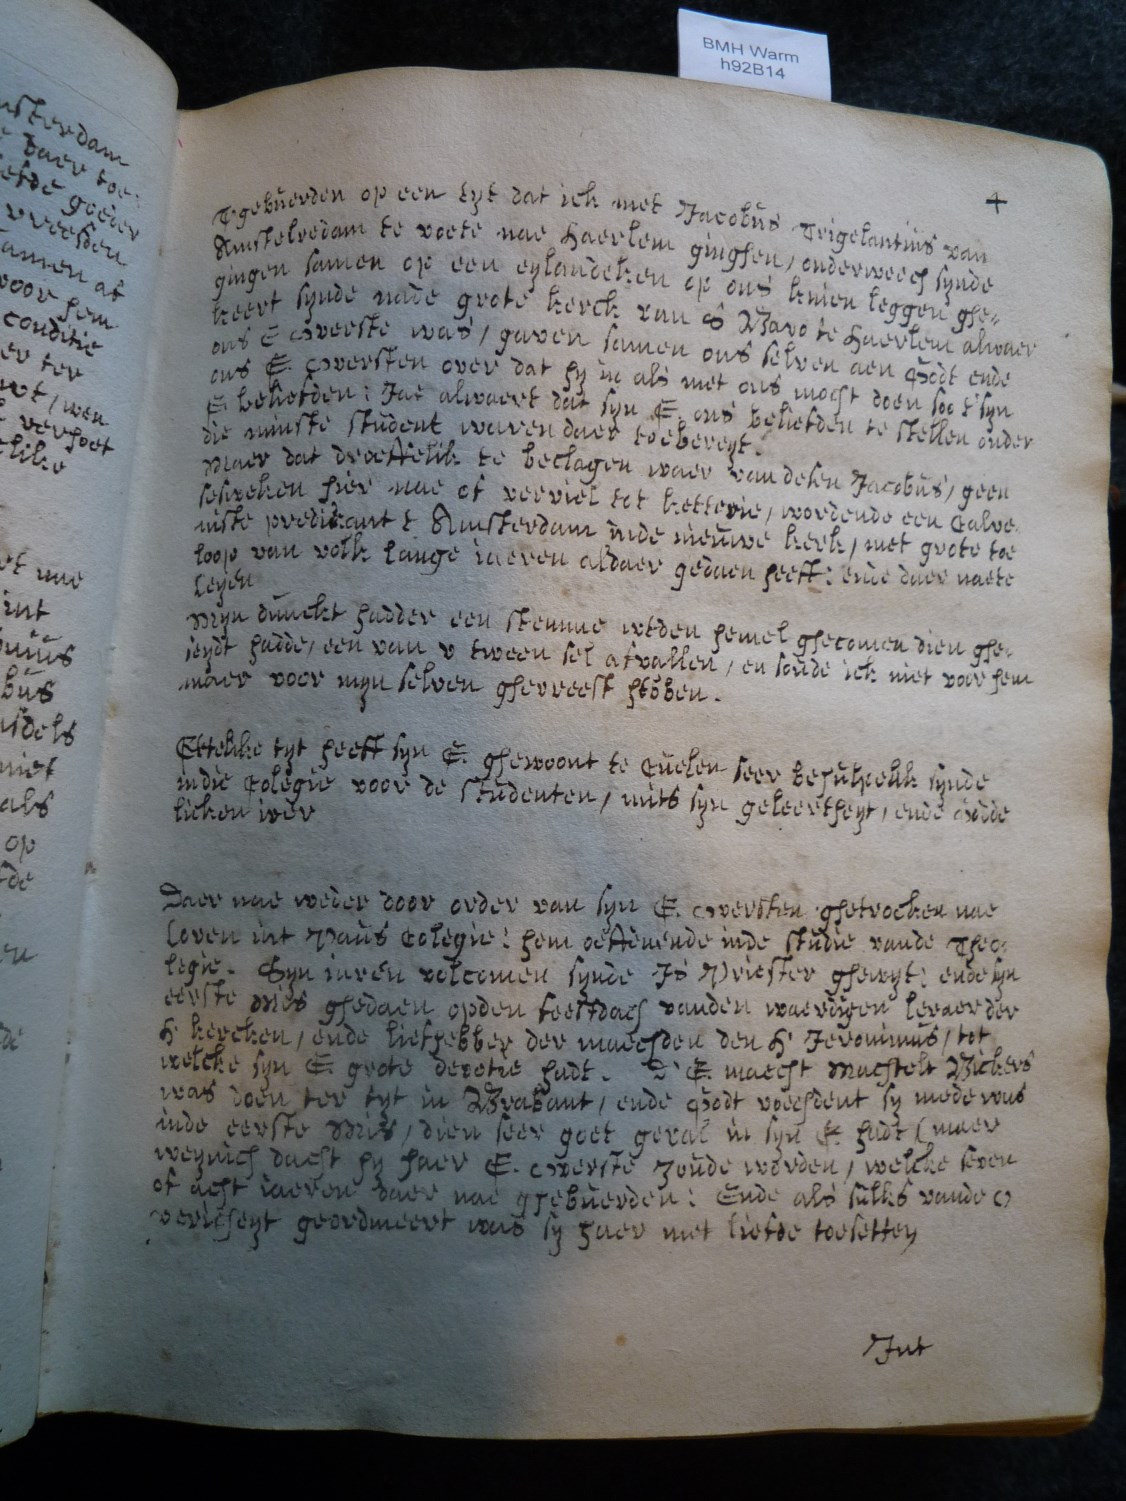 BMH Warm
h92B14
4
Tgebuerden op een tyt dat ick met Jacobus Trigelantius van
Amstelredam te voete nae haerlem ginghen / onderweech synde
gingen samen op een eylandeken op ons knien leggen ghe-
keert synde nade grote kerck van S Bavo te haerlem alwaer
ons E overste was / gaven samen ons selven aen Godt ende
ons E. oversten over dat hy in als met ons mocht doen soo t'syn
E beliefden: Jae alwaert dat syn E. ons beliefden te stellen onder
die minste student waren daer toebereyt.
Maer dat droeffelik te beclagen waer van desen Jacobus / geen
hier nae of verviel tot ketterie / wordende een Calve
niste predikant t Amsterdam inde nieuwe kerk / met grote toe
loop van volk lange iaeren aldaer gedaen heeft: ende daer naete
Leyen
Myn dunckt hadder een stemme wtden hemel ghecomen dien ghe-
seydt hadde / een van v tween sel afvallen / en soude ick niet voor hem
maer voor myn selven ghevreest hebben.
Ettelike tyt heeft syn E. ghewoont te Cuelen seer behulpelik synde
indie Colegie voor de studenten / mits syn geleertheyt / ende Godde
licken iver
Daer nae weder door order van syn E. oversten ghetrocken nae
Loven int Paus Colegie: hem oeffenende inde studie vande Theo-
legie. Syn iaren volcomen synde Is Priester ghewyt: ende syn
eerste Mis ghedaen opden feestdach vanden waerdigen leraer der
H kercken / ende liefhebber der maechden den H Jeronimus / tot
welcke syn E. grote devotie hadt. D' E. maecht Machtelt Bickers
was doen ter tyt in Brabant / ende Godt voechdent sy mede was
inde eerste Mis / dien seer goet geval in syn E. hadt (maer
weynich dacht hy haer E. overste zoude worden / welcke seven
of acht iaeren daer nae ghebuerden: Ende als sulks vande O
vericheyt geordineert was sy haer met liefde toesetten
Int